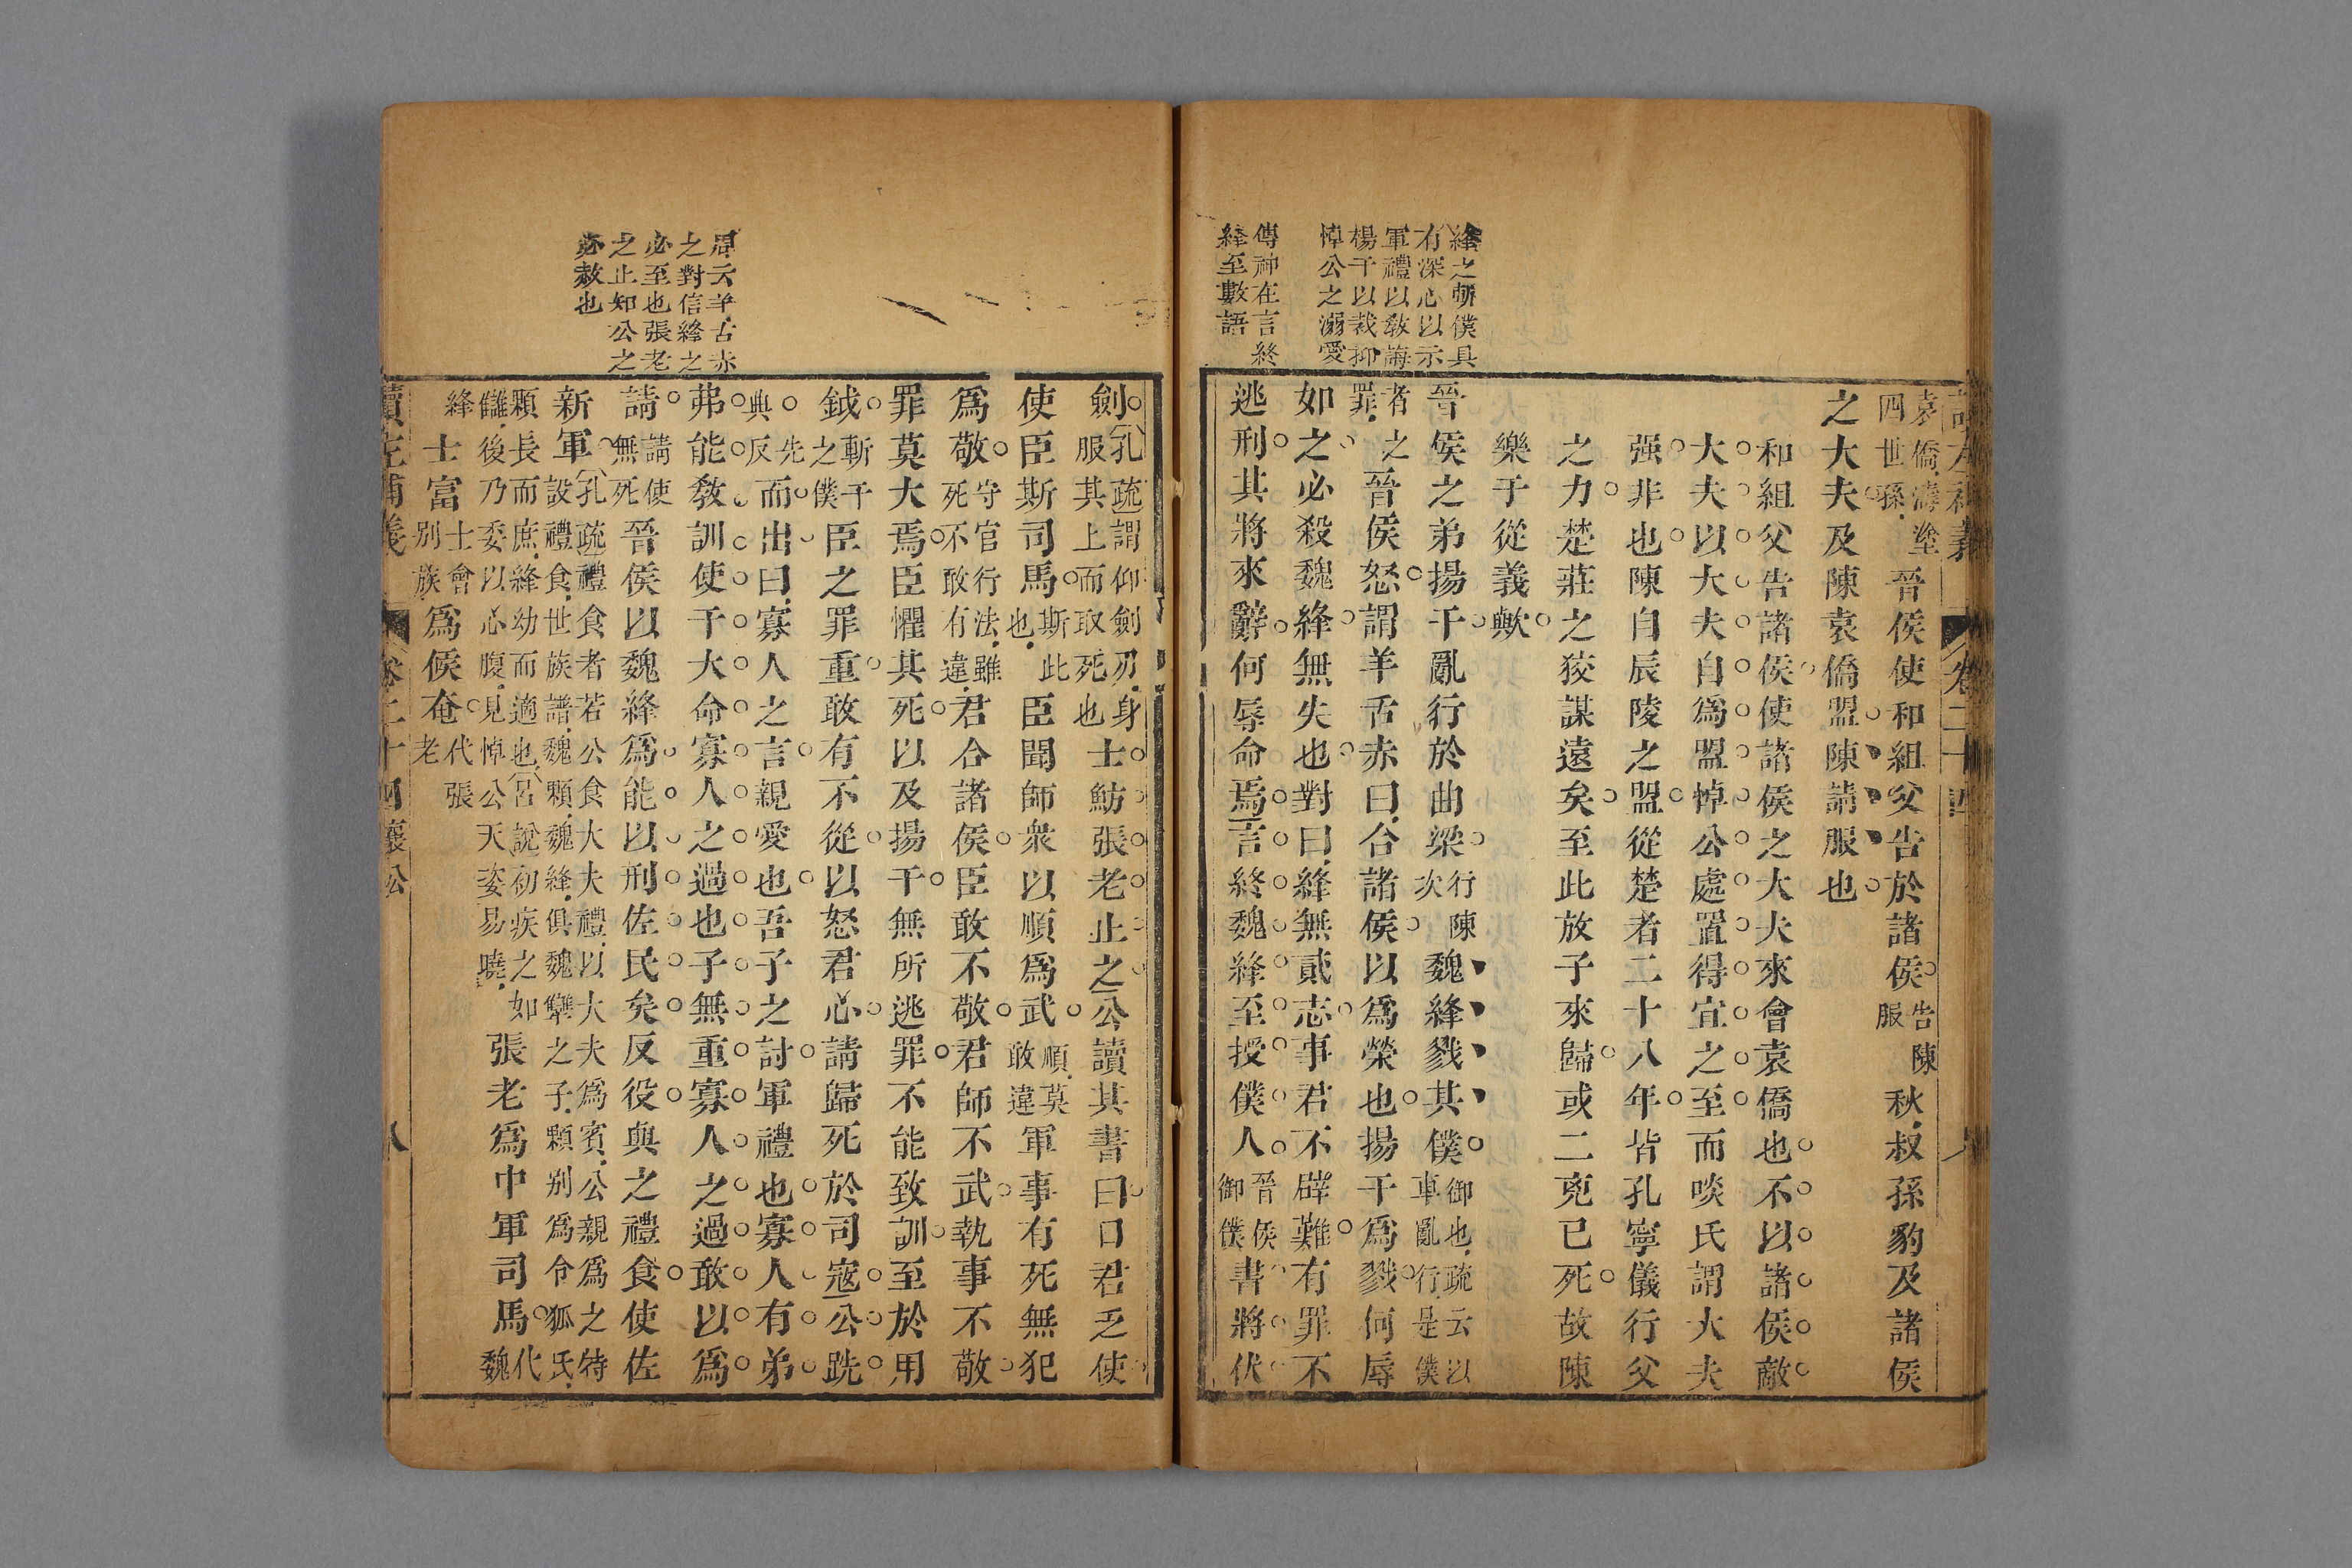 絳之斬僕具
有深心以示
軍禮以敎誨
楊干以裁抑
悼公之溺愛
傳神在言終
絳至數語
讀左補義
卷二十四
袁僑濤塗
四世孫
晉侯使和組父告於諸侯
告陳
服
秋叔孫豹及諸侯
之大夫及陳袁僑盟陳請服也
和組父告諸侯使諸侯之大夫來會袁僑也不以諸侯敵
大夫以大夫自爲盟悼公處置得宜之至而啖氏謂大夫
强非也陳自辰陵之盟從楚者二十八年皆孔寧儀行父
之力楚莊之狡謀遠矣至此放子來歸或二兇已死故陳
樂于從義歟
晉侯之弟揚干亂行於曲梁
行陳
次
魏絳戮其僕
御也疏云以
車亂行是僕
者之
罪
晉侯怒謂羊舌赤曰合諸侯以爲榮也揚干爲戮何辱
如之必殺魏絳無失也對曰絳無貳志事君不辟難有罪不
逃刑其將來辭何辱命焉言終魏絳至授僕人
晉侯
御僕
書將伏
周云羊舌赤
之對信絳之
必至也張老
之止知公之
必赦也
劍
孔疏謂仰劍刃身
服其上而取死也
士魴張老止之公讀其書曰日君乏使
使臣斯司馬
斯此
也
臣聞師衆以順爲武
順莫
敢違
軍事有死無犯
爲敬
守官行法雖
死不敢有違
君合諸侯臣敢不敬君師不武執事不敬
罪莫大焉臣懼其死以及揚干無所逃罪不能致訓至於用
鉞
斬干
之僕
臣之罪重敢有不從以怒君心請歸死於司寇公跣
先
典反
而出曰寡人之言親愛也吾子之討軍禮也寡人有弟
弗能敎訓使干大命寡人之過也子無重寡人之過敢以爲
請
請使
無死
晉侯以魏絳爲能以刑佐民矣反役與之禮食使佐
新軍
孔疏禮食者若公食大夫禮以大夫爲賓公親爲之特
設禮食世族譜魏顆魏絳俱魏犨之子顆別爲令狐氏
顆長而庶絳幼而適也呂說初疾之如
讎後乃委以心腹見悼公天姿易曉
張老爲中軍司馬
代魏
絳
士富
士會
別族
爲候奄
代張
老
讀左補義
卷二十四襄公
八